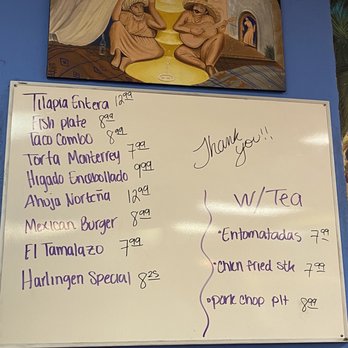 Tilapia Entera 12.99
Fish plate 8.99
Taco Combo 8.99
Torta Monterrey 7.99
Higado Encebollado 9.99
Ahoja Norteña 12.99
Mexican Burger 8.99
El Tamalazo 7.99
Harlingen Special 8.25
Thank you!!
w/Tea
•Entomatadas 7.99
•Chkn fried stk 7.99
•pork chop plt 8.99